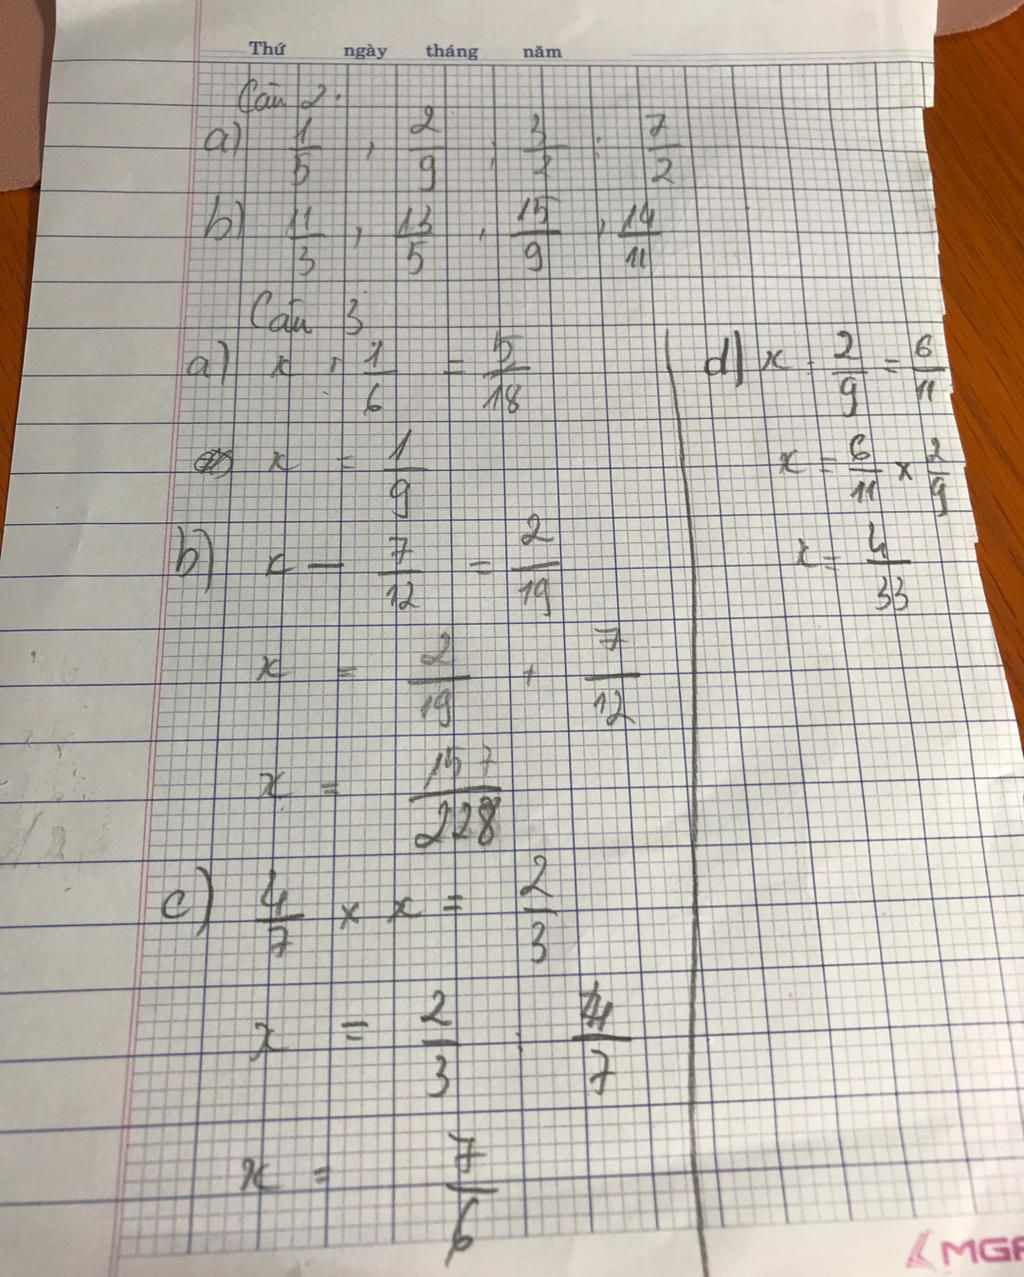 Thứ ngày tháng năm
Câu 2.
a) 1/5 , 2/9 ; 3/2 ; 7/2
b) 11/3 , 13/5 , 15/9 , 14/11
Câu 3
a) x + 1/6 = 5/18
x = 1/9
b) x − 7/12 = 2/19
x = 2/19 + 7/12
x = 157/228
c) 4/7 × x = 2/3
x = 2/3 : 4/7
x = 7/6
d) x : 2/9 = 6/11
x = 6/11 × 2/9
x = 4/33